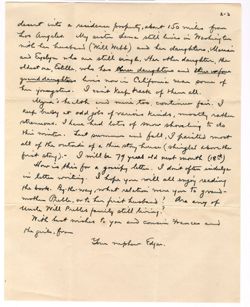 2-3
desert into a residence property, about 150 miles from
Los Angeles. My sister Lena still lives in Washington
with her husband (Will Webb) and her daughters, Marcia
and Evelyn who are still single. Her other daughter, the
oldest one, Estelle, who has three daughters and three
granddaughters lives now in California near some of
her youngsters. I can't keep track of them all.
Myra's health and mine too continue fair. I
keep busy at odd jobs of various kinds, mostly rather
strenuous. I have had lots of snow shoveling to do
this winter. Last summer and fall, I painted most
all of the outside of a two story house (shingled above the
first story). I will be 79 years old next month (18th)
How is this for a gossipy letter. I don't often indulge
in letter writing. I hope you will all enjoy reading
the book. By the way, what relation were you to grand-
mother Pells, not her first husband? Are any of
Uncle Will Pells family still living?
With best wishes to you and cousin Frances and
the girls, from
Your nephew Edgar.